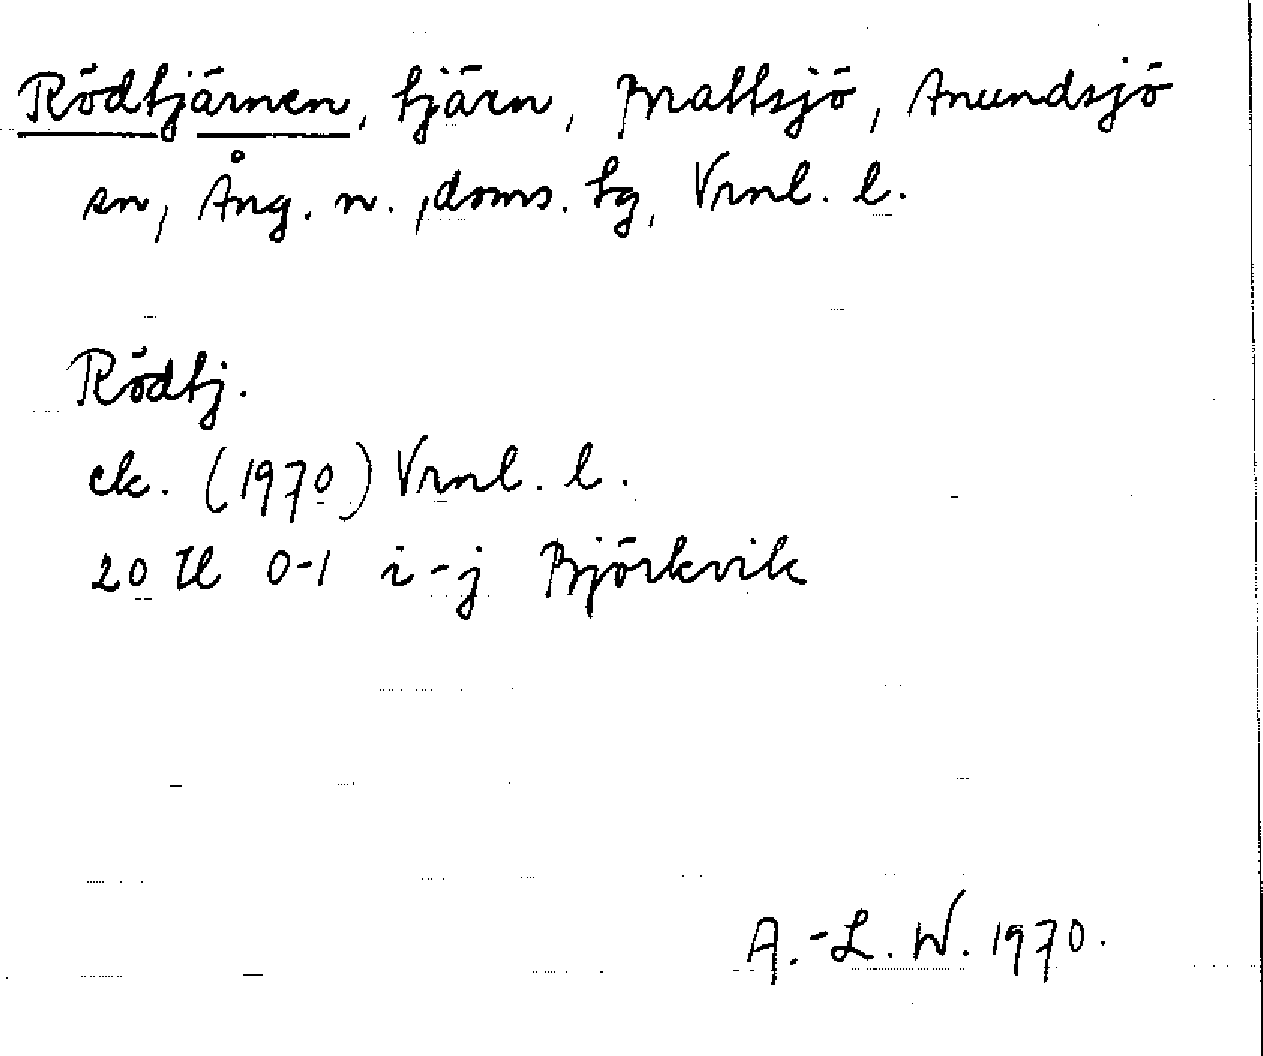 Rödtjärnen, tjärn, Mattsjö, Anundsjö
sn, Ång. n., doms. tg, Vrnl. l.
Rödtj.
ek. (1970) Vrnl. l.
20 I l 0-1 i-j Björkvik
A.-L. W. 1970.